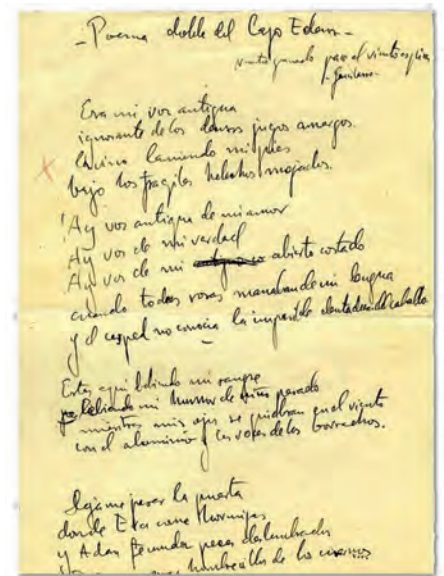 - Poema doble del Lago Edem -
ganado pace el viento espira
- Garcilaso -
Era mi voz antigua
ignorante de los densos jugos amargos.
lamiendo mis pies
bajo los fragiles helechos mojados.
¡Ay voz antigua de mi amor
Ay voz de mi verdad
Ay voz de mi abierto costado
cuando todas rosas manaban de mi lengua
y el cesped no conocia la impasible dentadura del caballo
Estas aqui bebiendo mi sangre
bebiendo mi humor de niño pasado
mientras mis ojos se quiebran en el viento
con el aluminio y las voces de los borrachos.
Dejame pasar la puerta
donde Eva come hormigas
y Adan fecunda peces deslumbrados
hombrecillos de los cuernos